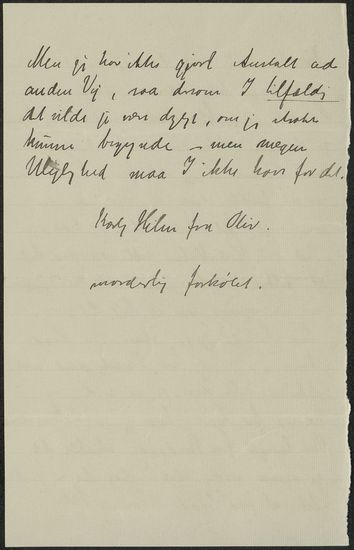 Men jeg har ikke gjort Anstalt ad
anden Vej, saa dersom I tilfældig
det vilde jo være dygt, om jeg straks
kunne begynde – men megen
Ulejlighed maa I ikke have for det.
Kærlig Hilsen fra
morderlig forkølet.